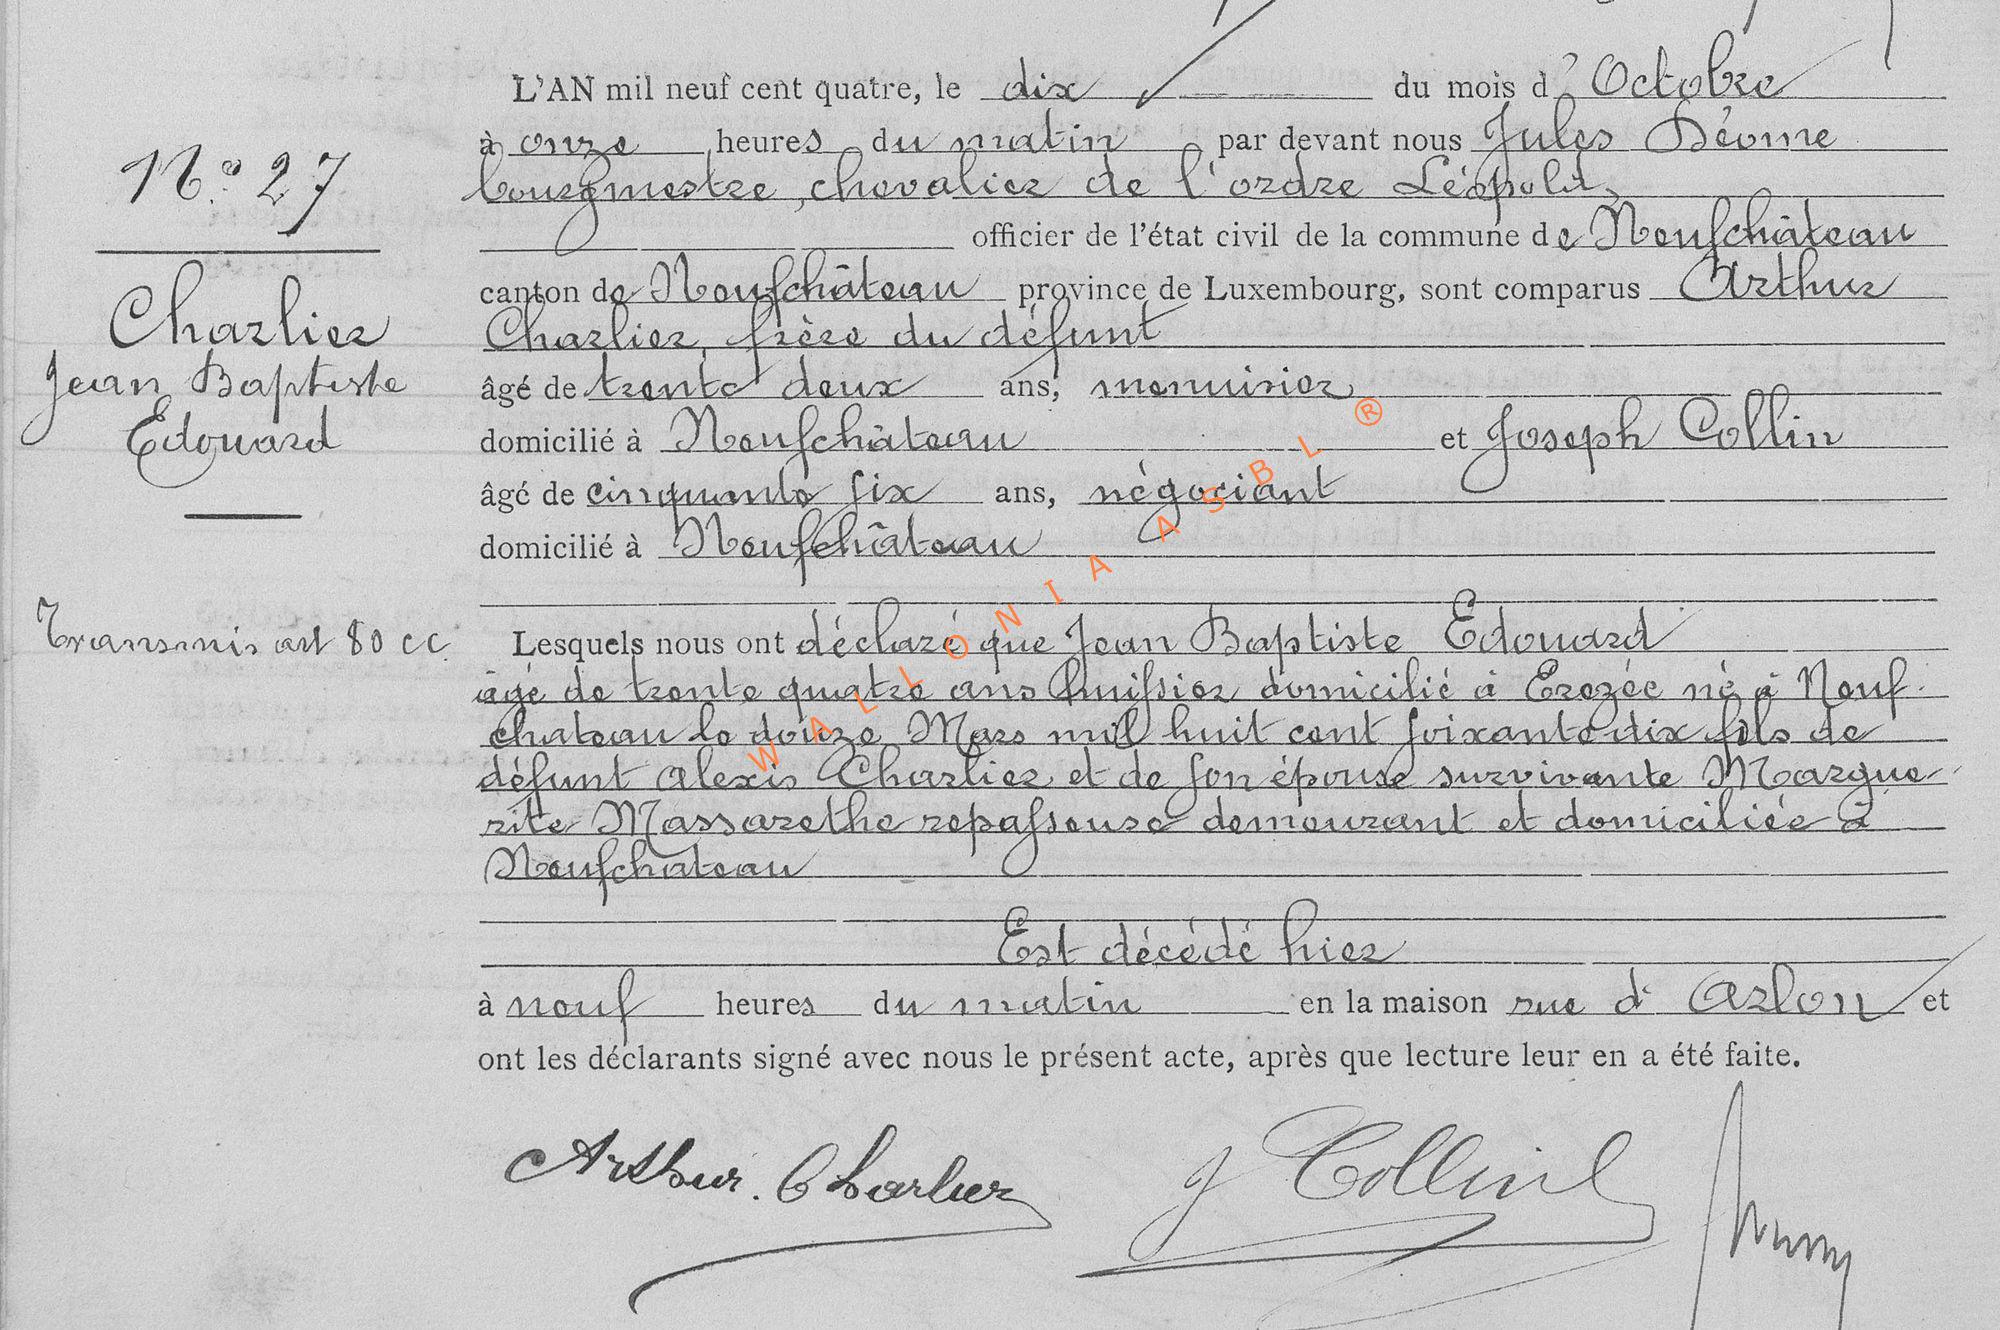 L'AN mil neuf cent quatre, le dix du mois d'Octobre
à onze heures du matin par devant nous Jules Déome
bourgmestre, chevalier de l'ordre Léopold,
officier de l'état civil de la commune de Neufchâteau
canton de Neufchâteau province de Luxembourg, sont comparus Arthur
Charlier, frère du défunt
âgé de trente deux ans, menuisier
domicilié à Neufchâteau et Joseph Collin
âgé de cinquante six ans, négociant
domicilié à Neufchâteau
Lesquels nous ont déclaré que Jean Baptiste Edouard
âgé de trente quatre ans huissier domicilié à Erezée né à Neuf-
chateau le douze Mars mil huit cent soixante dix fils de
défunt Alexis Charlier et de son épouse survivante Margue-
rite Massarethe repasseuse demeurant et domiciliée à
Neufchateau
Est décédé hier
à neuf heures du matin en la maison rue d'Arlon et
ont les déclarants signé avec nous le présent acte, après que lecture leur en a été faite.
N° 27
Charlier
Jean Baptiste
Edouard
Transmis art 80 cc.
Arthur. Charlier
J Collin
WALLONIA ASBL ®